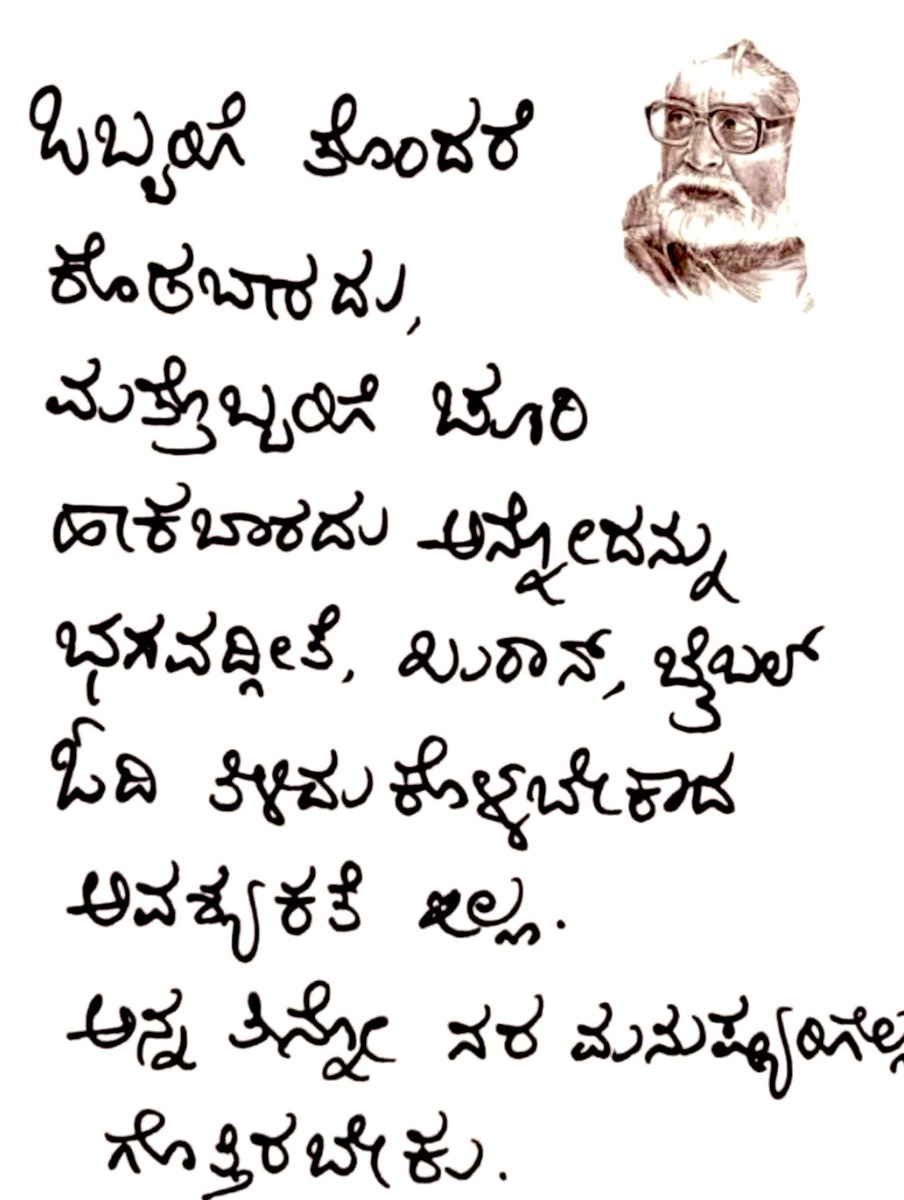 ಒಬ್ಬರಿಗೆ ತೊಂದರೆ
ಕೊಡಬಾರದು,
ಮತ್ತೊಬ್ಬರಿಗೆ ಚೂರಿ
ಹಾಕಬಾರದು ಅನ್ನೋದನ್ನು
ಭಗವದ್ಗೀತೆ, ಖುರಾನ್, ಬೈಬಲ್
ಓದಿ ತಿಳಿದು ಕೊಳ್ಳಬೇಕಾದ
ಅವಶ್ಯಕತೆ ಇಲ್ಲ.
ಅನ್ನ ತಿನ್ನೋ ನರ ಮನುಷ್ಯರಿಗೆಲ್ಲ
ಗೊತ್ತಿರಬೇಕು.